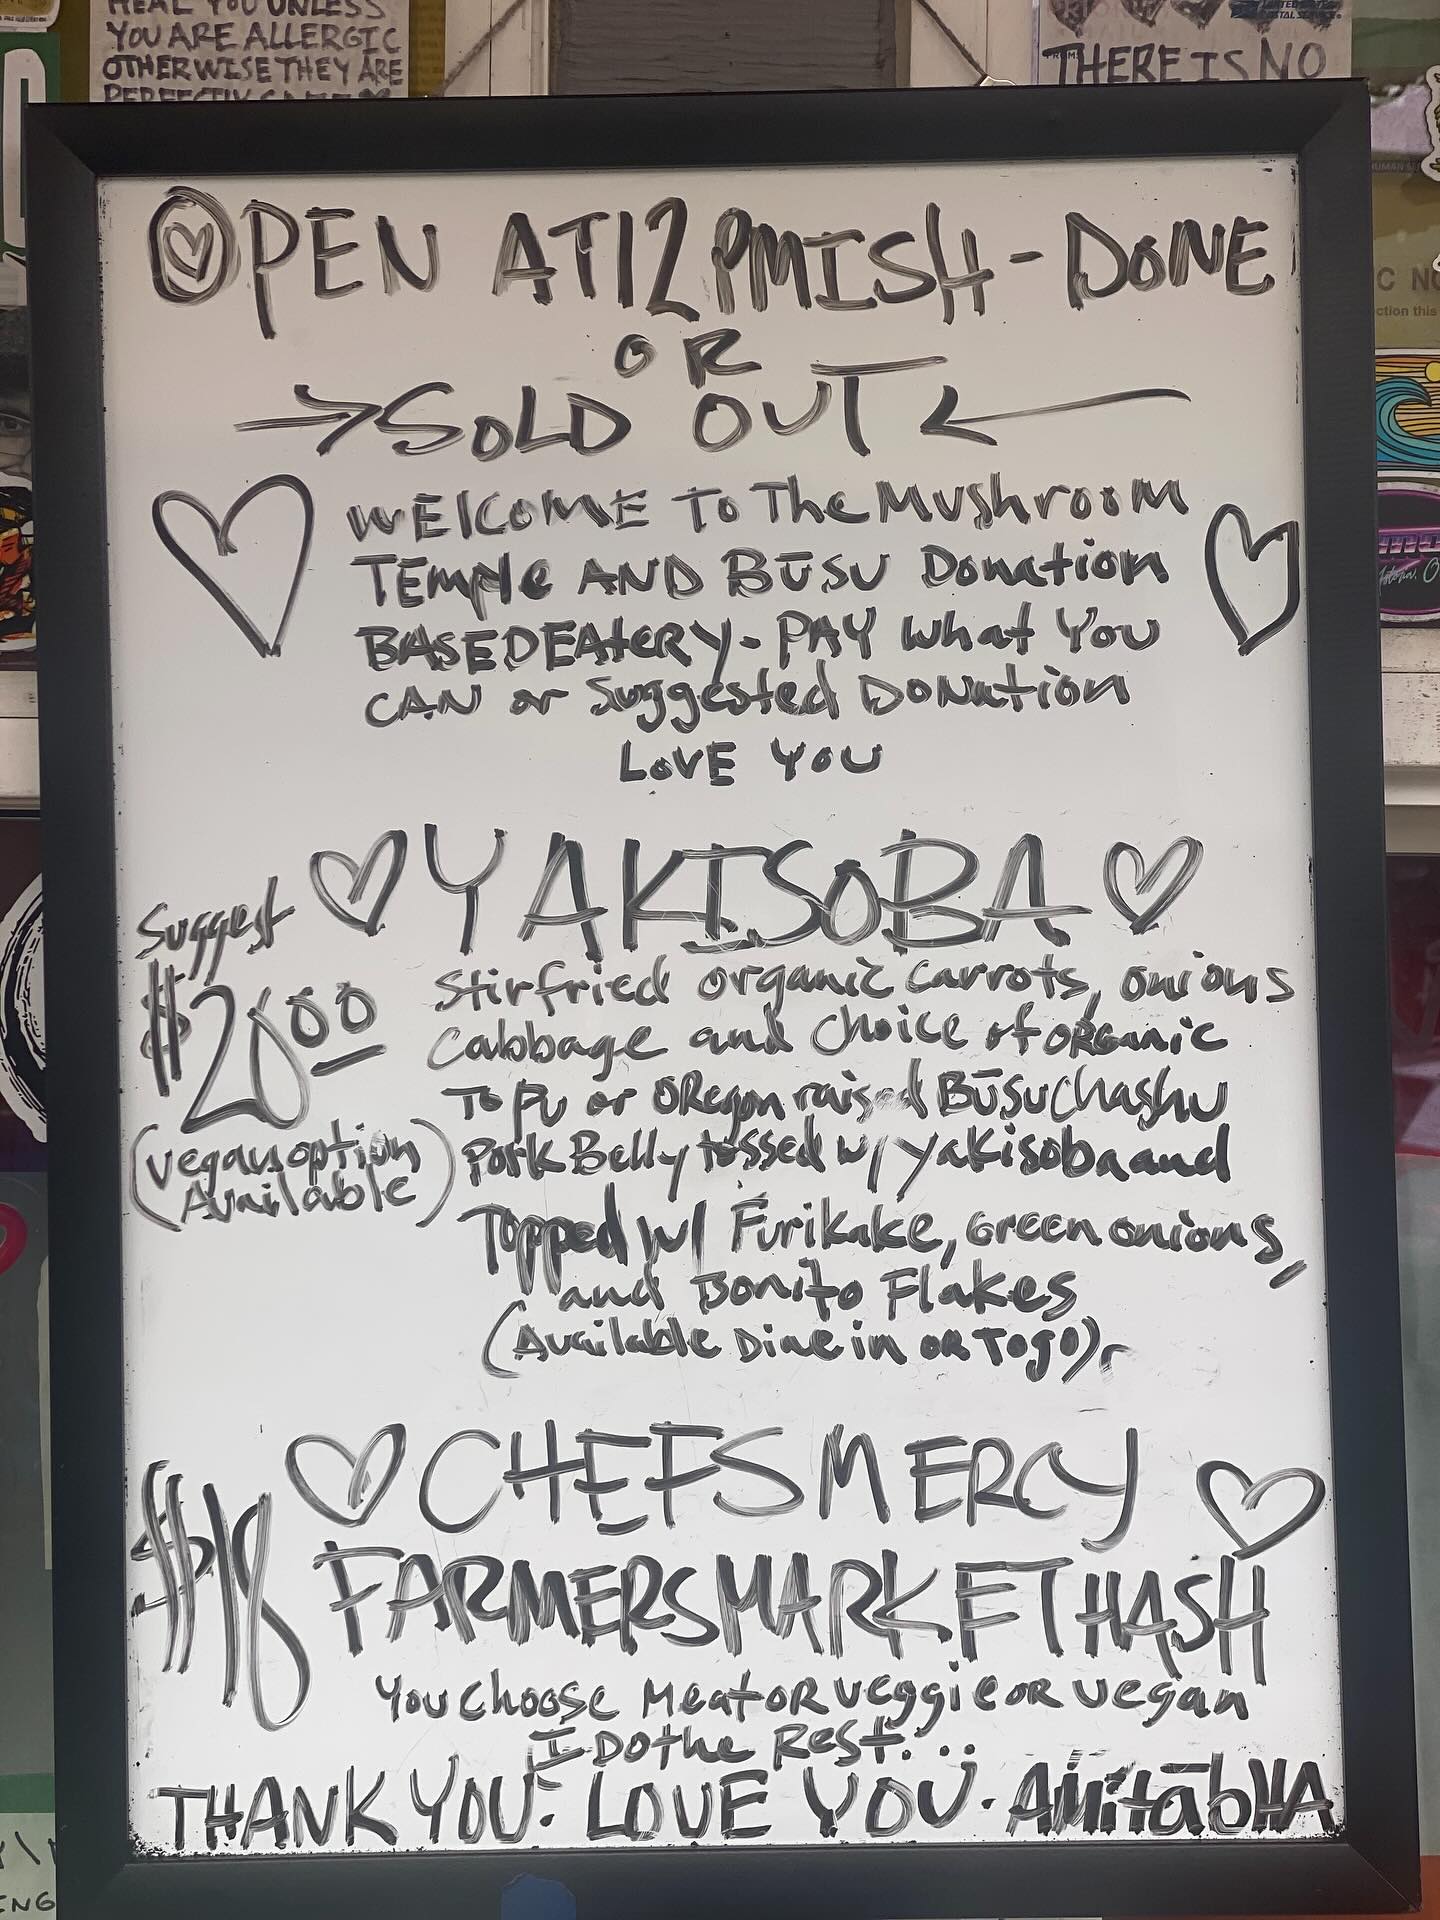 HEAL YOU UNLESS
YOU ARE ALLERGIC
OTHERWISE THEY ARE
PERFECTLY SAFE
THERE IS NO
OPEN AT 12 PMISH - DONE
OR
SOLD OUT
WELCOME TO The Mushroom
TEmple AND BŪSU Donation
BASED EAtERY - PAY what You
CAN or Suggested DONation
LOVE YOU
YAKISOBA
Suggest
$20.00
(vegan option
Available)
Stirfried organic carrots, onions
Cabbage and Choice of ORganic
ToFU or ORegon raised BūsuChashu
Pork Belly tossed w/ yakisoba and
Topped w/ Furikake, Green onions,
and Bonito Flakes
(Available Dine in OR Togo)
CHEFS MERCY
$18
FARMERS MARKET HASH
You Choose Meat OR veggie OR vegan
I Do the Rest...
THANK YOU. LOVE YOU. AmitābHA